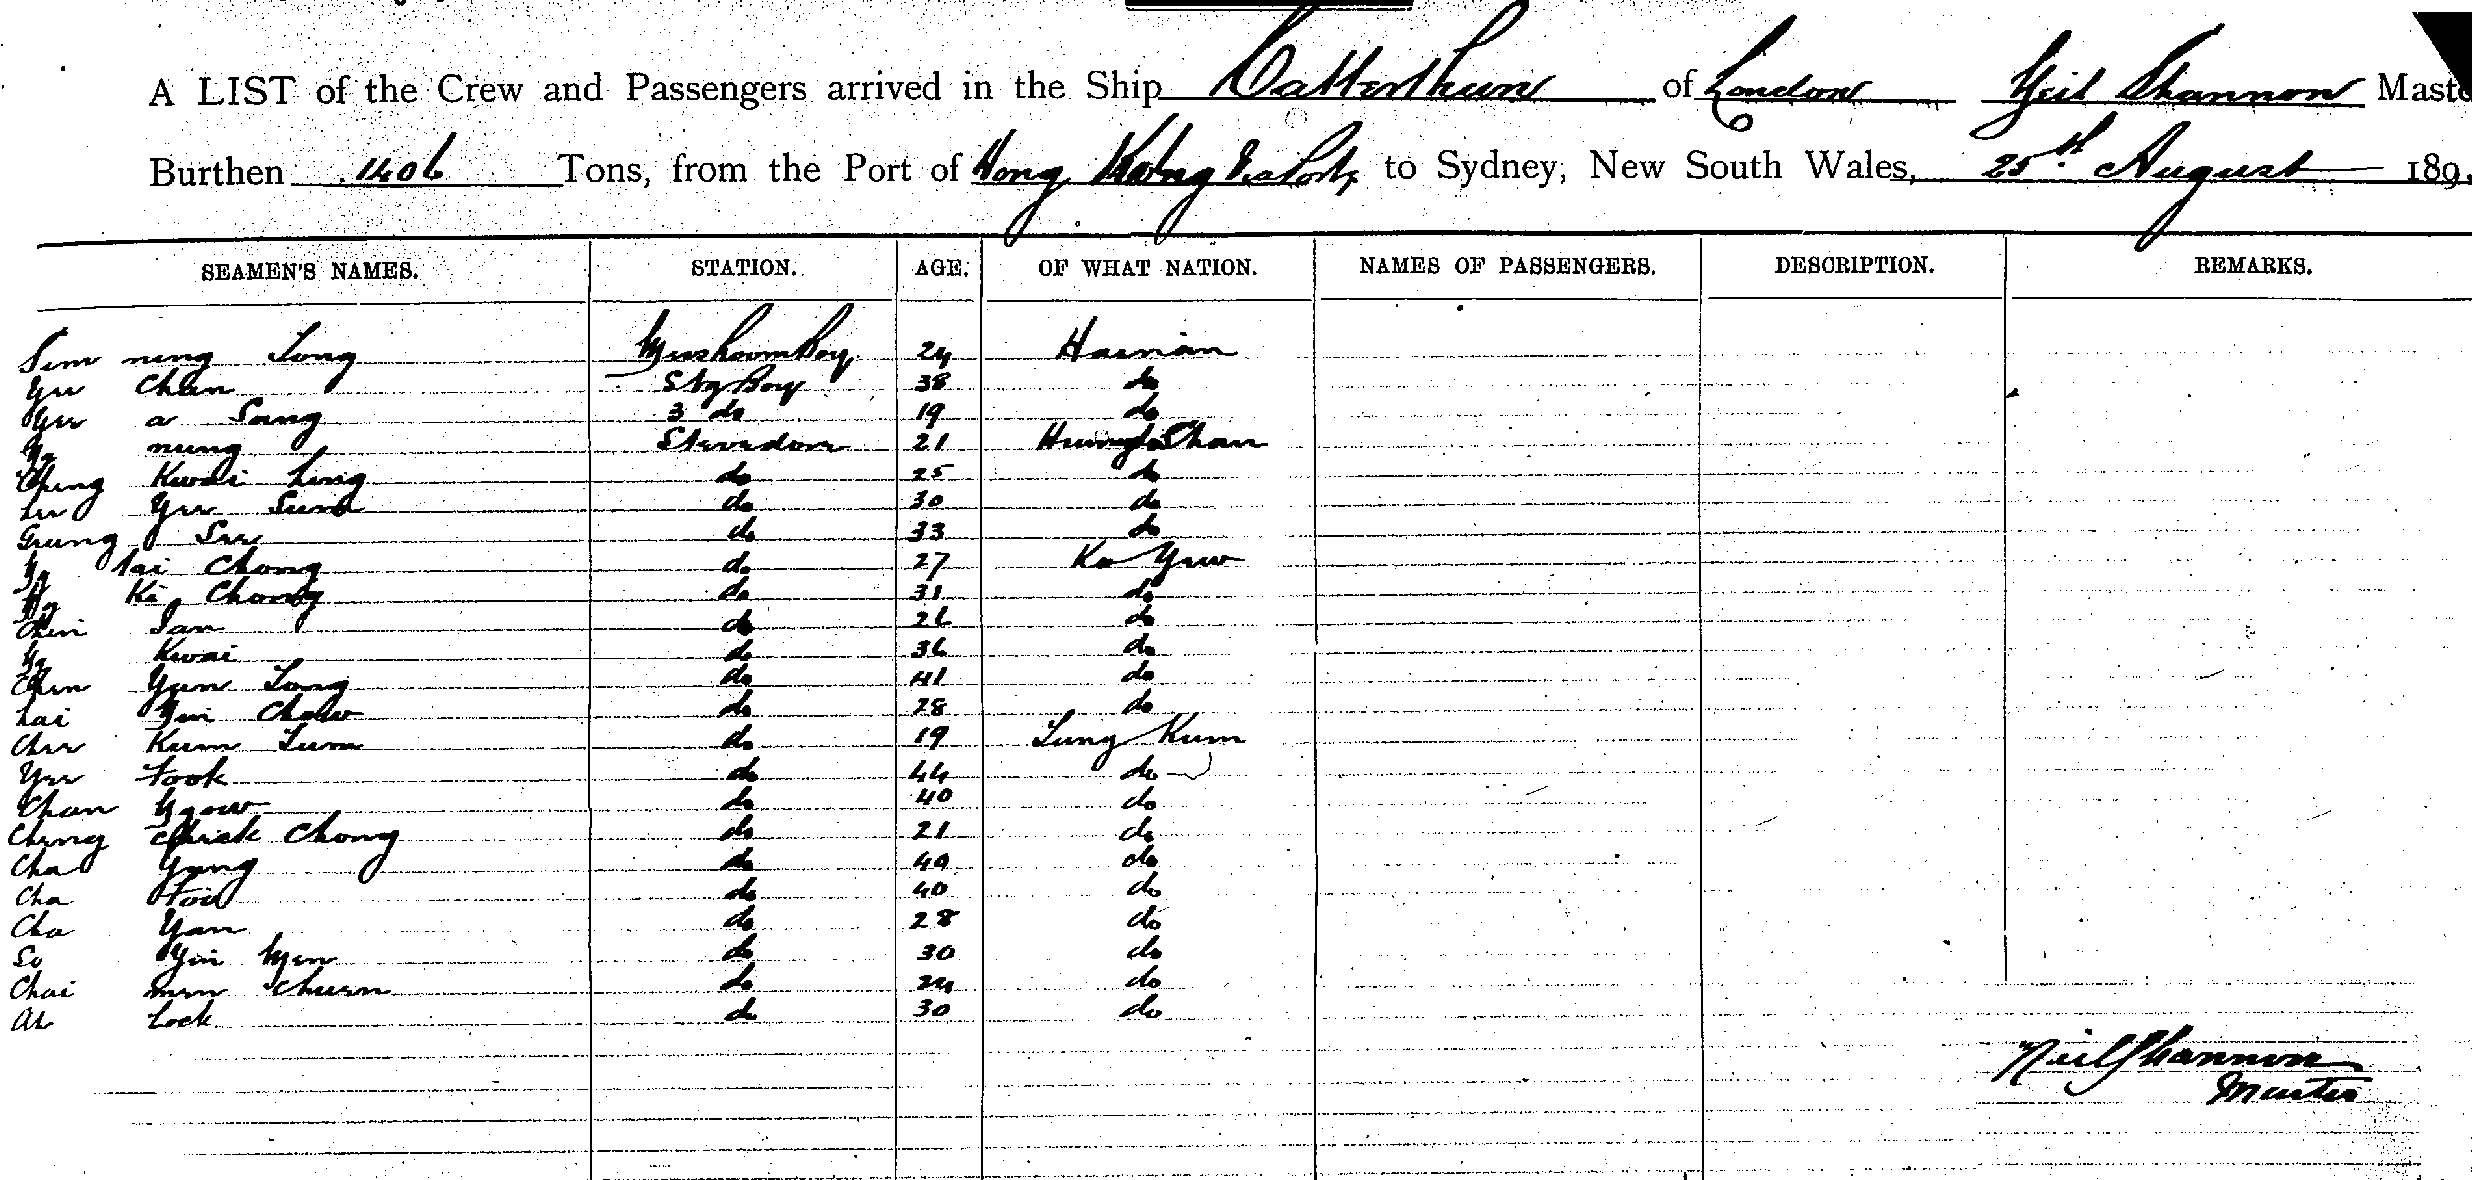 A LIST of the Crew and Passengers arrived in the Ship Catterthun of London Neil Shannon Maste
Burthen 1406 Tons, from the Port of Hong Kong & Ports to Sydney, New South Wales, 25th August 189
SEAMEN'S NAMES. STATION. AGE. OF WHAT NATION. NAMES OF PASSENGERS. DESCRIPTION. REMARKS.
Sim ning Tong Messroom Boy 24 Hainan
Yee Chan Stg Boy 38 do
Yee a Sang 3 do 19 do
Ng nung Stevedore 21 Heung Shan
Ching Kwai Ling do 25 do
Lee Yee Sum do 30 do
Gung See do 33 do
Ng Tai Chong do 27 Ko Yew
Ng Ki Chong do 31 do
Chin San do 26 do
Ng Kwai do 36 do
Chin Yun Tong do 41 do
Lai Yui Chow do 28 do
Chee Kum Tum do 19 Tung Kum
Yee took do 44 do
Chan Ngow do 40 do
Ching Chick Chong do 21 do
Cha Yung do 40 do
Cha Foo do 40 do
Cha Yan do 28 do
So Yin Wen do 30 do
Chai men Chuen do 24 do
Ah Lock do 30 do
Neil Shannon
Master